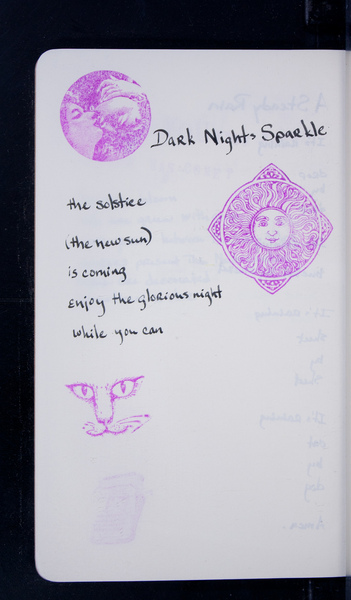 Dark Nights Sparkle
the solstice
(the new sun)
is coming
enjoy the glorious night
while you can